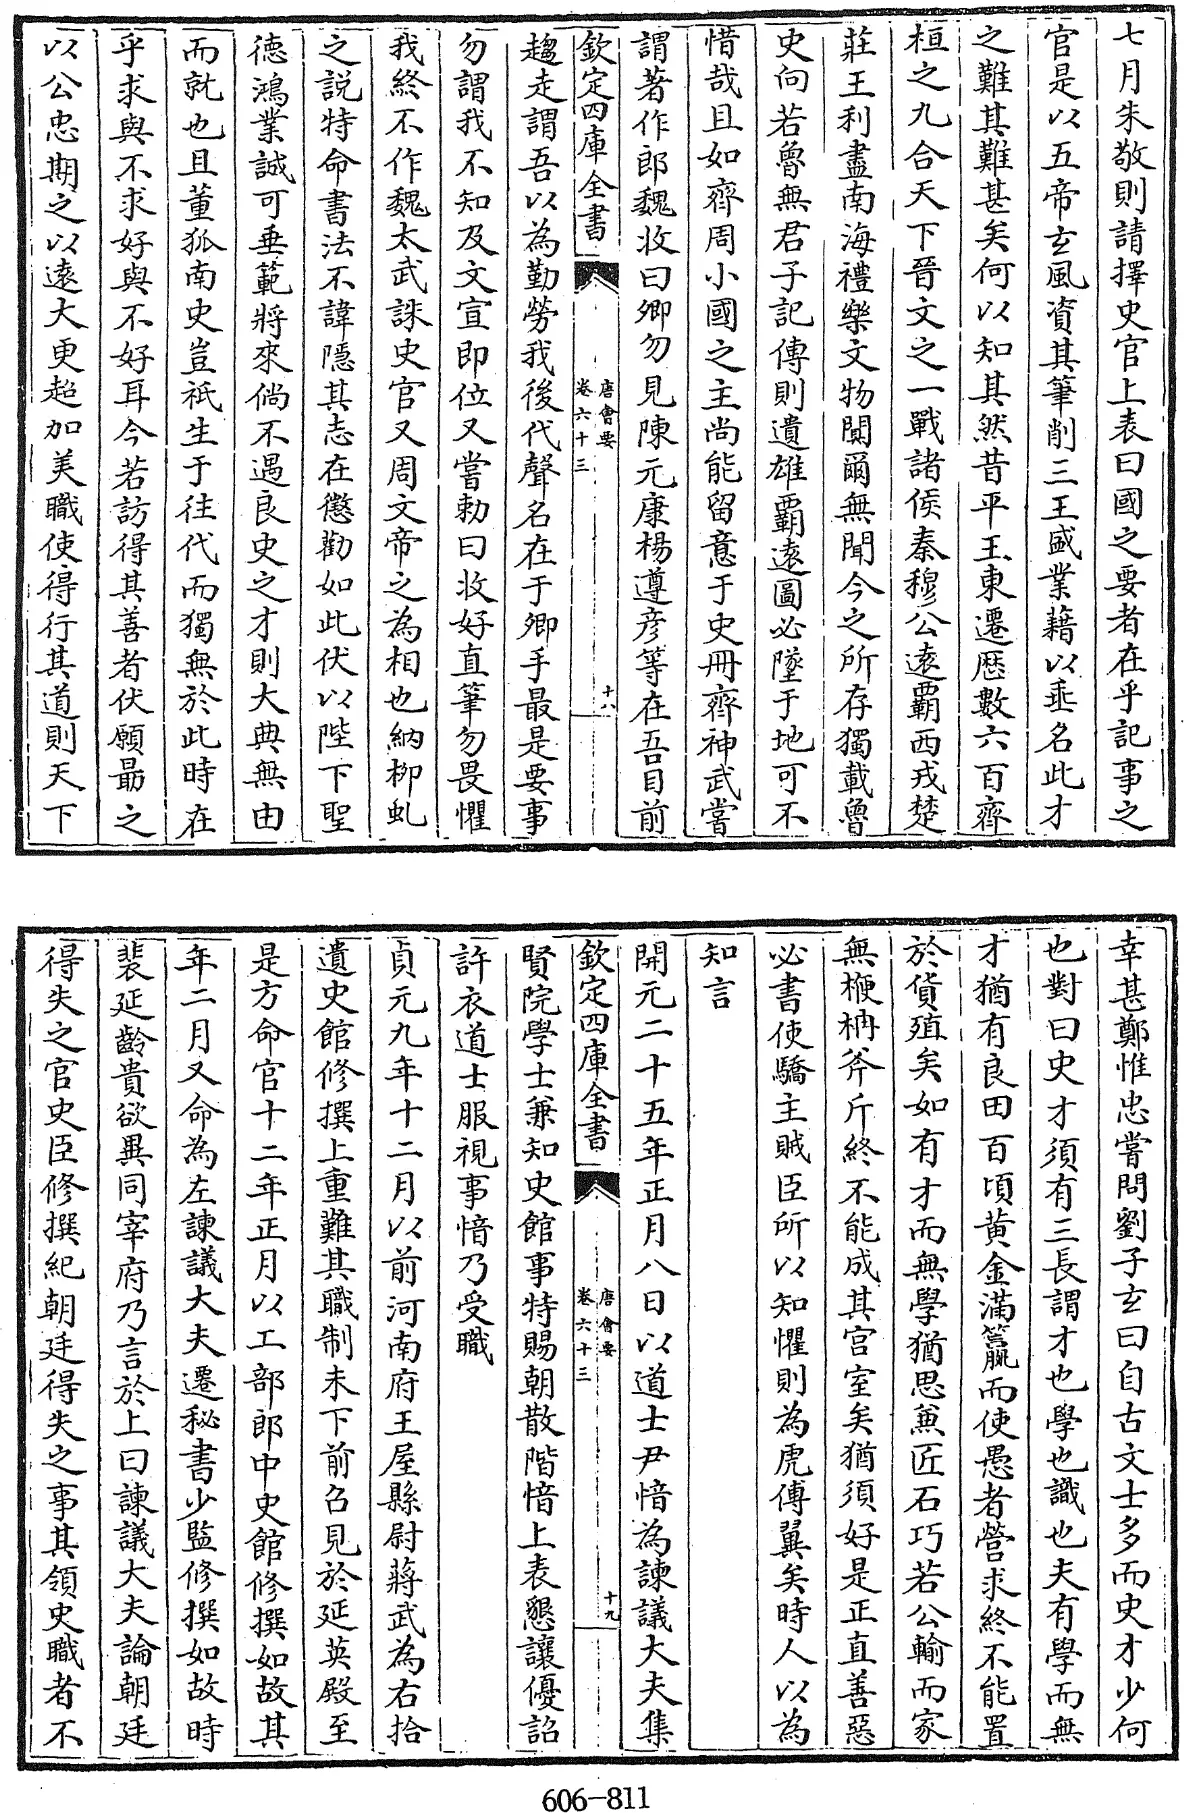 七月朱敬則請擇史官上表曰國之要者在乎記事之
官是以五帝玄風資其筆削三王盛業藉以垂名此才
之難其難甚矣何以知其然昔平王東遷歴數六百齊
桓之九合天下晉文之一戰諸侯秦穆公遠覇西戎楚
莊王利盡南海禮樂文物闃爾無聞今之所存獨載魯
史向若魯無君子記傳則遺雄覇遠圖必墜于地可不
惜哉且如齊周小國之主尚能留意于史冊齊神武嘗
謂著作郎魏收曰卿勿見陳元康楊遵彦等在吾目前
欽定四庫全書
唐會要
卷六十三
十八
趨走謂吾以為勤勞我後代聲名在于卿手最是要事
勿謂我不知及文宣即位又嘗勅曰收好直筆勿畏懼
我終不作魏太武誅史官又周文帝之為相也納柳虬
之説特命書法不諱隱其志在懲勸如此伏以陛下聖
德鴻業誠可垂範將來倘不遇良史之才則大典無由
而就也且董狐南史豈祇生于往代而獨無於此時在
乎求與不求好與不好耳今若訪得其善者伏願最之
以公忠期之以遠大更超加美職使得行其道則天下
幸甚鄭惟忠嘗問劉子玄曰自古文士多而史才少何
也對曰史才須有三長謂才也學也識也夫有學而無
才猶有良田百頃黄金滿籯而使愚者營求終不能置
於貨殖矣如有才而無學猶思兼匠石巧若公輸而家
無楩枏斧斤終不能成其宫室矣猶須好是正直善惡
必書使驕主賊臣所以知懼則為虎傅翼矣時人以為
知言
開元二十五年正月八日以道士尹愔為諫議大夫集
欽定四庫全書
唐會要
卷六十三
十九
賢院學士兼知史館事特賜朝散階愔上表懇讓優詔
許衣道士服視事愔乃受職
貞元九年十二月以前河南府王屋縣尉蔣武為右拾
遺史館修撰上重難其職制未下前召見於延英殿至
是方命官十二年正月以工部郎中史館修撰如故其
年二月又命為左諫議大夫遷秘書少監修撰如故時
裴延齡貴欲異同宰府乃言於上曰諫議大夫論朝廷
得失之官史臣修撰紀朝廷得失之事其領史職者不
606-811